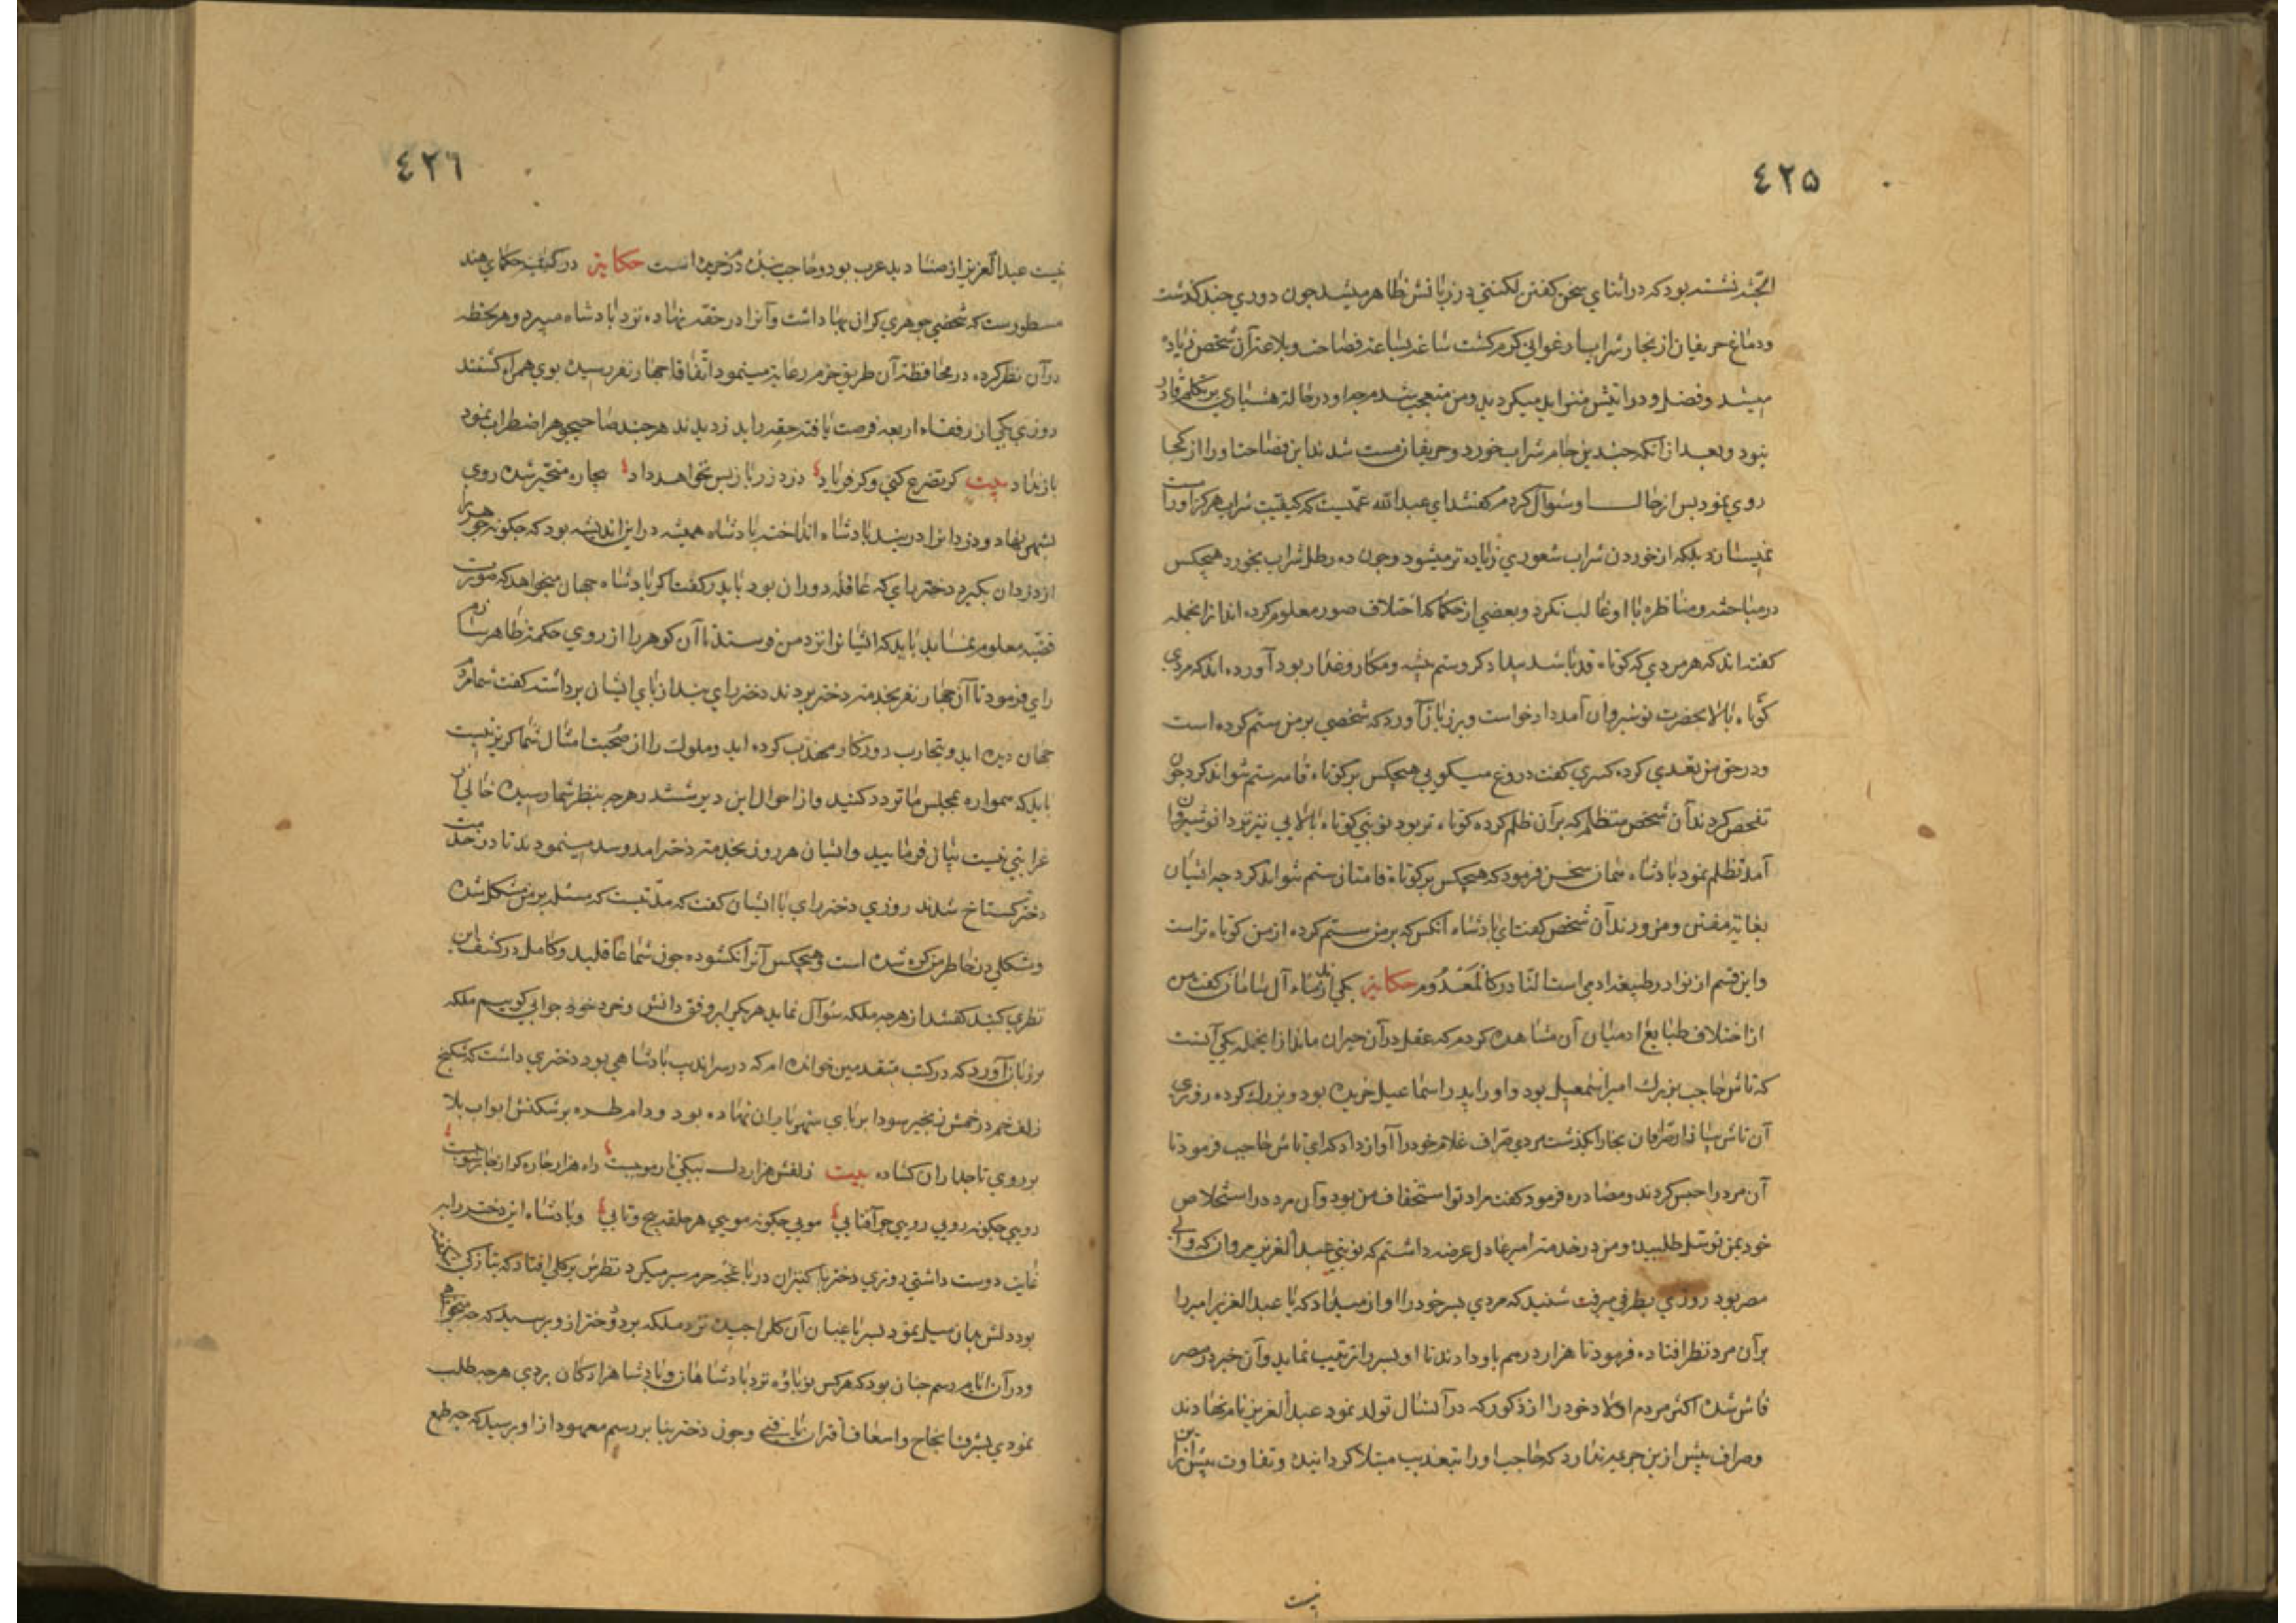 ٤٢٥
نشسته بود که در اثنای سخن کفتن لکنتی در زبانش ظاهر میشد چون دوری چند کذشت
ودماغ حریفان از بخار شراب ارغوانی کرم کشت ساعة بساعة فصاحت وبلاغت آن شخص زیاده
میشد وفضل و متزاید میکردید ومن متعجب شدم چه او در حالة هشیاری بر تکلم قادر
نبود وبعد از آنکه چندین جام شراب خورد وحریفان مست شدند این فصاحت اورا از کجا
روی نمود پس از حال او سؤال کردم کفتند ای عبدالله عمریست که کیفیت شراب هرکز اورا مست
نمیسازد بلکه از خوردن شراب شعوری زیاده تر میشود وچون ده رطل شراب بخورد هیچکس
در مباحثه ومناظره با او غالب نکردد وبعضی از حکما که اختلاف صور معلوم کرده اند از انجمله
کفته اند که هر مردی که کوتاه قد باشد بیدادکر وستم پیشه ومکار وغدار بود آورده اند که مردی
کوتاه بالا بحضرت نوشیروان آمد داد خواست وبر زبان آورد که شخصی بر من ستم کرده است
ودر حق من تعدی کرده کسری کفت دروغ میکویی هیچکس بر کوتاه قامة ستم نتواند کرد چون
تفحص کردند آن شخص متظلم که بر آن ظلم کرده کوتاه تر بود نوبتی کوتاه بالایی نیز نزد انوشیروان
آمد تظلم نمود پادشاه همان سخن فرمود که هیچکس بر کوتاه قامتان ستم نتواند کرد چه ایشان
بغایة مفتن ومزورند آن شخص کفت ای پادشاه آنکس که بر من ستم کرده از من کوتاه تر است
واین قسم از نوادر طبیعة ادمی است النادر کالمعدوم حکایة یکی از ندماء آل سامان کفت من
از اختلاف طبایع ادمیان آن مشاهده کردم که عقل در آن حیران ماند از انجمله یکی آنست
که تاش حاجب بزرك امیر اسمعیل بود واورا پدر اسماعیل خریده بود وبزرك کرده روزی
آن تاش ببازار صرافان بخارا بکذشت مردی صراف غلام خودرا آواز داد که ای تاش حاجب فرمود تا
آن مرد را حبس کردند ومصادره فرمود کفت مراد تو استخفاف من بود وآن مرد در استخلاص
خود بمن توسل طلبیده ومن در خدمة امیر عادل عرضه داشتم که نوبتی عبدالعزیز مروان که والی
مصر بود روزی بطرفی میرفت شنید که مردی پسر خودرا اواز میداد که یا عبدالعزیز امیر را
بر آن مرد نظر افتاده فرمود تا هزار درهم باو دادند تا او پسر را تربیت نماید وآن خبر در مصر
فاش شده اکثر مردم اولاد خودرا از ذکور که در آنسال تولد نمود عبدالعزیز نام نهادند
وصراف بیش از ین جریمه ندارد که حاجب اورا بتعذیب مبتلا کردانیده وتفاوت بیش از این
نیست
٤٢٦
نیست عبدالعزیز از صنادید عرب بود وحاجب بندهٔ درم خریده است حکایة در کتب حکمای هند
مسطورست که شخصی جوهری کران بها داشت وآنرا در حقه نهاده نزد پادشاه میبرد وهر لحظه
در آن نظر کرده در محافظة آن طریق حزم رعایة مینمود اتفاقا چهار نفر رسیده بوی همراه کشتند
روزی یکی از رفقاء اربعه فرصت یافته حقه را بدزدیدند هرچند صاحب جوهر اضطراب نمود
باز نداد بیت کر تضرع کنی وکر فریاد دزد زر باز پس نخواهد داد بیچاره متحیر شده روی
بشهر نهاد ودزدانرا در بند پادشاه انداخت پادشاه همیشه در این اندیشه بود که چکونه جوهر را
از دزدان بکیرد دختر رای که عاقلهٔ دوران بود با پدر کفت اکر پادشاه جهان میخواهد که صورت
قضیه معلوم نماید باید که ایشانرا نزد من فرستد تا آن کوهر را از روی حکمة ظاهر سازم
رای فرمود تا آن چهار نفر بخدمة دختر بردند دختر رای بند از پای ایشان برداشته کفت شما مردم
جهان دیده اید وتجارب روزکار مهذب کرده اید وملوك را از صحبت امثال شما کریز نیست
باید که همواره بمجلس ما تردد کنید واز احوال این دیر ششدر هرچه بنظر شما رسیده خالی از
غرابتی نیست بیان فرمایید وایشان هر روز بخدمة دختر امد وشد مینمودند تا در خدمت
دختر کستاخ شدند روزی دختر رای با ایشان کفت که مدتیست که مسئله بر من مشکل شده
ومشکلی در خاطر من کره شده است وهیچکس آنرا نکشوده چون شما عاقلید وکامل در کشف این
نظری کنید کفتند از هرچه ملکه سؤال نماید هر یکی بر وفق دانش وخرد خود جوابی کوییم ملکه
بر زبان آورد که در کتب متقدمین خوانده ام که در سراندیب پادشاهی بود دختری داشت که شکنج
زلف خم در خمش زنجیر سودا بر پای شهریاران نهاده بود ودام طره پر شکنش ابواب بلا
بر روی تاجداران کشاده بیت زلفش هزار دل بیکی تار مو ببست راه هزار چاره کر از چار سو ببست
رویی چکونه رویی رویی چو آفتابی مویی چکونه مویی هر حلقه پیچ وتابی وپادشاه این دختر را بر
غایت دوست داشتی روزی دختر با کنیزان در باغچه حرم سیر میکرد نظرش بر کلی افتاد که بتازکی
بود دلش بدان میل نمود پسر باغبان آن کلرا چیده نزد ملکه برد دختر از و پرسید که چه میخواهی
ودر آن ایام رسم چنان بود که هرکس نوباوه نزد پادشاهان وپادشاهزادکان بردی هرچه طلب
نمودی بشرف انجاح واسعاف اقتران یافتی وچون دختر بنا بر رسم معهود از او پرسید که چه طمع